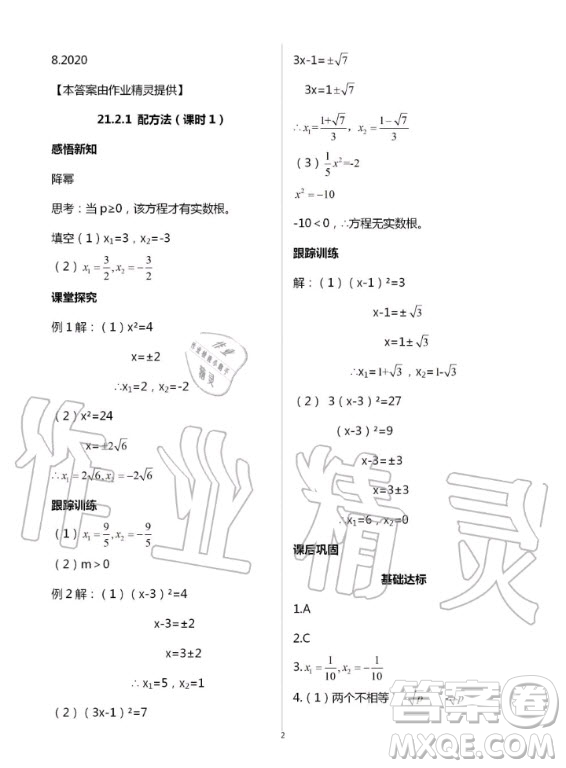 8.2020
【本答案由作业精灵提供】
21.2.1 配方法（课时1）
感悟新知
降幂
思考：当 p≥0，该方程才有实数根。
填空（1）x₁=3，x₂=-3
（2）x₁=3/2,x₂=-3/2
课堂探究
例 1 解：（1）x²=4
x=±2
∴x₁=2，x₂=-2
（2）x²=24
x=±2√6
∴x₁=2√6,x₂=-2√6
跟踪训练
（1）x₁=9/5,x₂=-9/5
（2）m＞0
例 2 解：（1）（x-3）²=4
x-3=±2
x=3±2
∴x₁=5，x₂=1
（2）（3x-1）²=7
3x-1=±√7
3x=1±√7
∴x₁=(1+√7)/3，x₂=(1-√7)/3
（3）1/5x²=-2
x²=-10
-10＜0，∴方程无实数根。
跟踪训练
解：（1）（x-1）²=3
x-1=±√3
x=1±√3
∴x₁=1+√3，x₂=1-√3
（2） 3（x-3）²=27
（x-3）²=9
x-3=±3
x=3±3
∴x₁=6，x₂=0
课后巩固
基础达标
1.A
2.C
3.x₁=1/10,x₂=-1/10
4.（1）两个不相等
2
作业精灵
答案圈
MXQE.COM